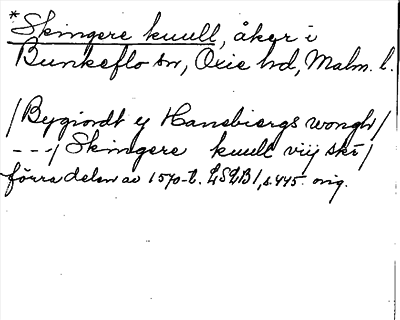 *Skingere kuull, åker i
Bunkeflo sn, Oxie hd, Malm. l.
/Bygiordt ey Hansbiergs wongh/
---/Skingere kuull viij skr/
förra delen av 1570-t. LSLB1, s.445. orig.